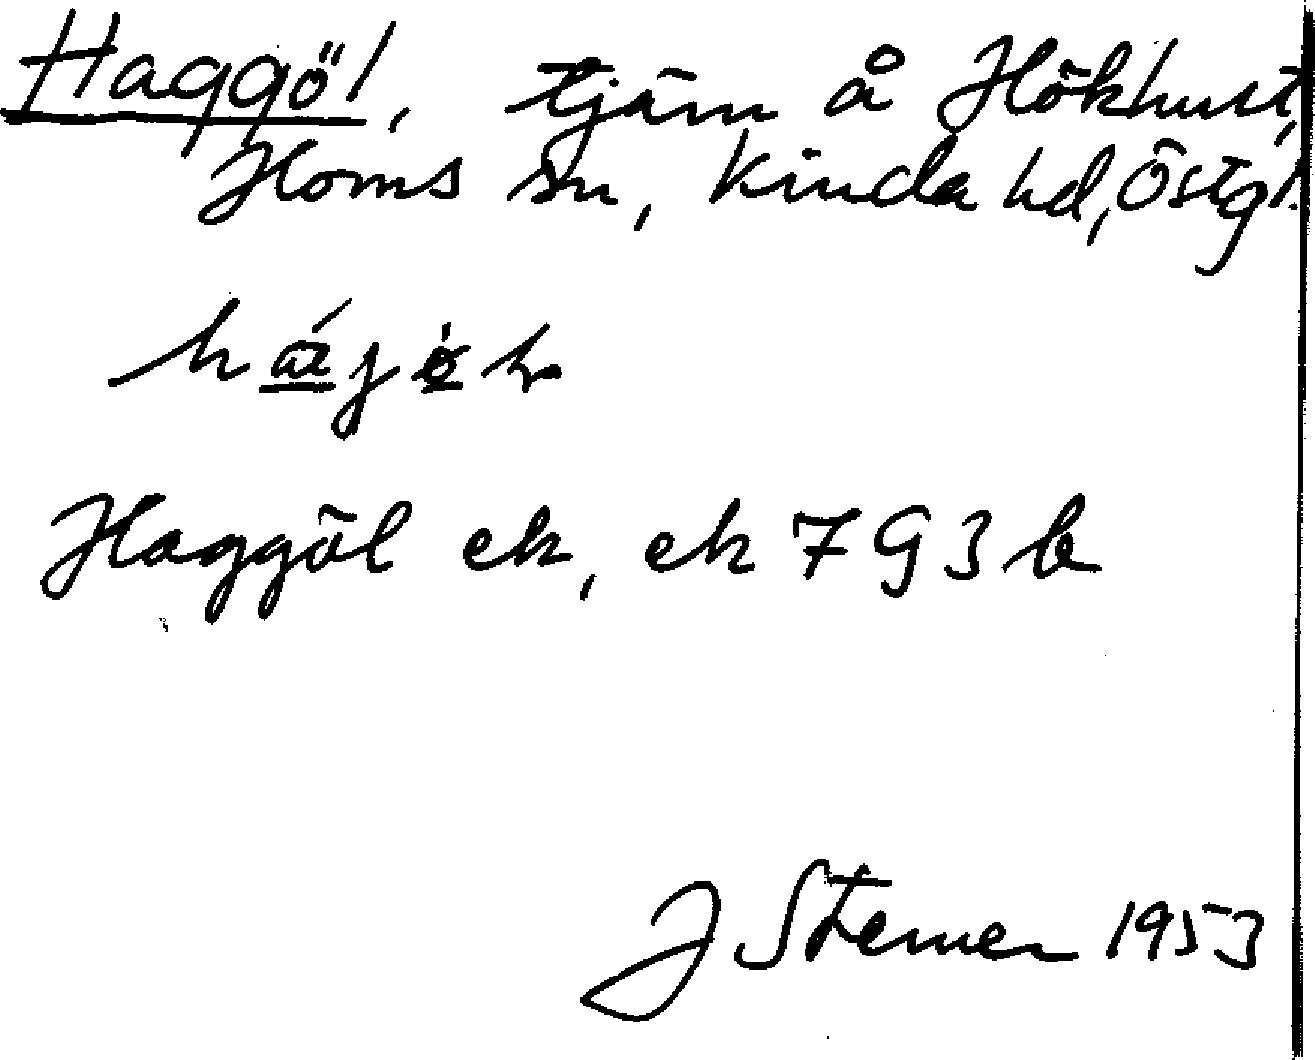 Haggöl, tjärn å Hökhust,
Horns sn, Kinda hd, Östgl.
Haggöl ek, ek 7 G 3 b
J Sterner 1953